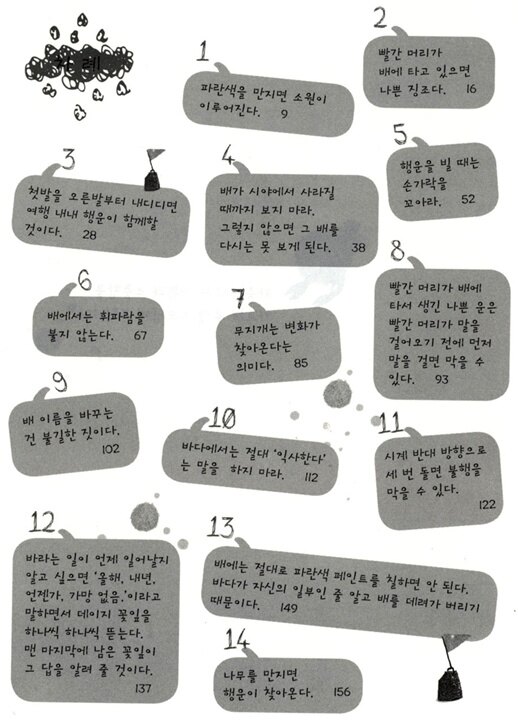 차례
1
파란색을 만지면 소원이
이루어진다. 9
2
빨간 머리가
배에 타고 있으면
나쁜 징조다. 16
3
첫발을 오른발부터 내디디면
여행 내내 행운이 함께할
것이다. 28
4
배가 시야에서 사라질
때까지 보지 마라.
그렇지 않으면 그 배를
다시는 못 보게 된다. 38
5
행운을 빌 때는
손가락을
꼬아라. 52
6
배에서는 휘파람을
불지 않는다. 67
7
무지개는 변화가
찾아온다는
의미다. 85
8
빨간 머리가 배에
타서 생긴 나쁜 운은
빨간 머리가 말을
걸어오기 전에 먼저
말을 걸면 막을 수
있다. 93
9
배 이름을 바꾸는
건 불길한 짓이다.
102
10
바다에서는 절대 '익사한다'
는 말을 하지 마라. 112
11
시계 반대 방향으로
세 번 돌면 불행을
막을 수 있다.
122
12
바라는 일이 언제 일어날지
알고 싶으면 '올해, 내년,
언젠가, 가망 없음.'이라고
말하면서 데이지 꽃잎을
하나씩 하나씩 뜯는다.
맨 마지막에 남은 꽃잎이
그 답을 알려 줄 것이다.
137
13
배에는 절대로 파란색 페인트를 칠하면 안 된다.
바다가 자신의 일부인 줄 알고 배를 데려가 버리기
때문이다. 149
14
나무를 만지면
행운이 찾아온다. 156